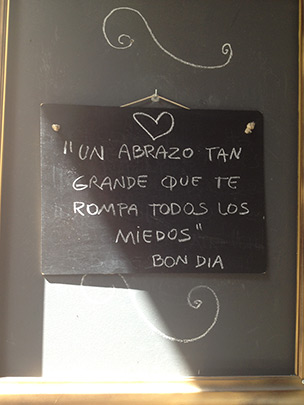 "UN ABRAZO TAN
GRANDE QUE TE
ROMPA TODOS LOS
MIEDOS"
BON DIA